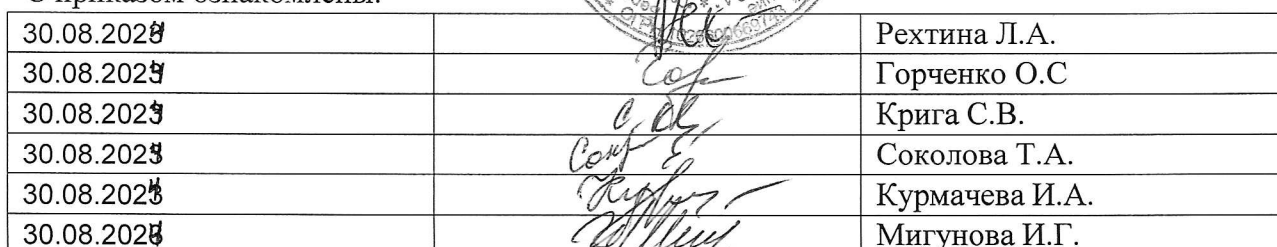 С приказом ознакомлены:
30.08.2024 Рехтина Л.А.
30.08.2024 Горченко О.С
30.08.2024 Крига С.В.
30.08.2024 Соколова Т.А.
30.08.2024 Курмачева И.А.
30.08.2024 Мигунова И.Г.